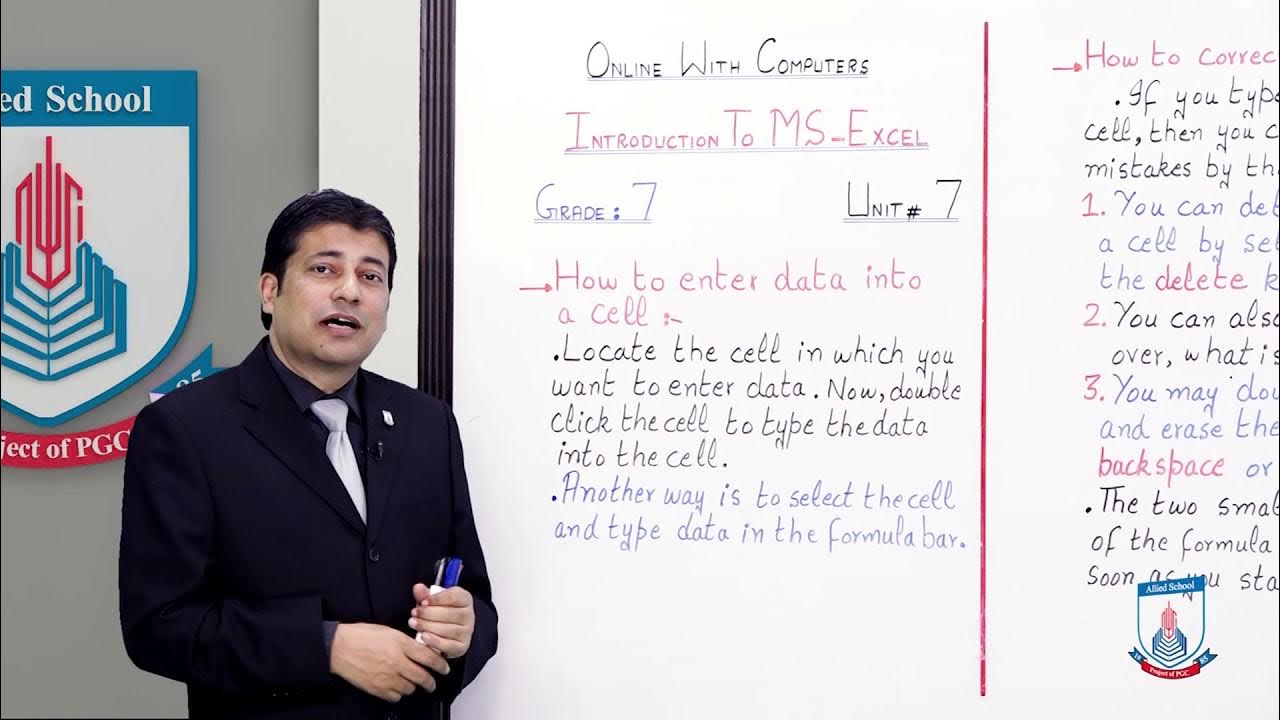 ed School
ject of PGC
Online With Computers
Introduction To MS-Excel
Grade: 7
Unit# 7
How to enter data into
a cell :-
.Locate the cell in which you
want to enter data. Now, double
click the cell to type the data
into the cell.
.Another way is to select the cell
and type data in the formula bar.
How to correc
.If you type
cell, then you c
mistakes by th
1. You can de
a cell by se
the delete k
2. You can also
over, what is
3. You may dou
and erase the
backspace or
.The two smal
of the formula
Soon as you sta
Allied School
19 85
Project of PGC